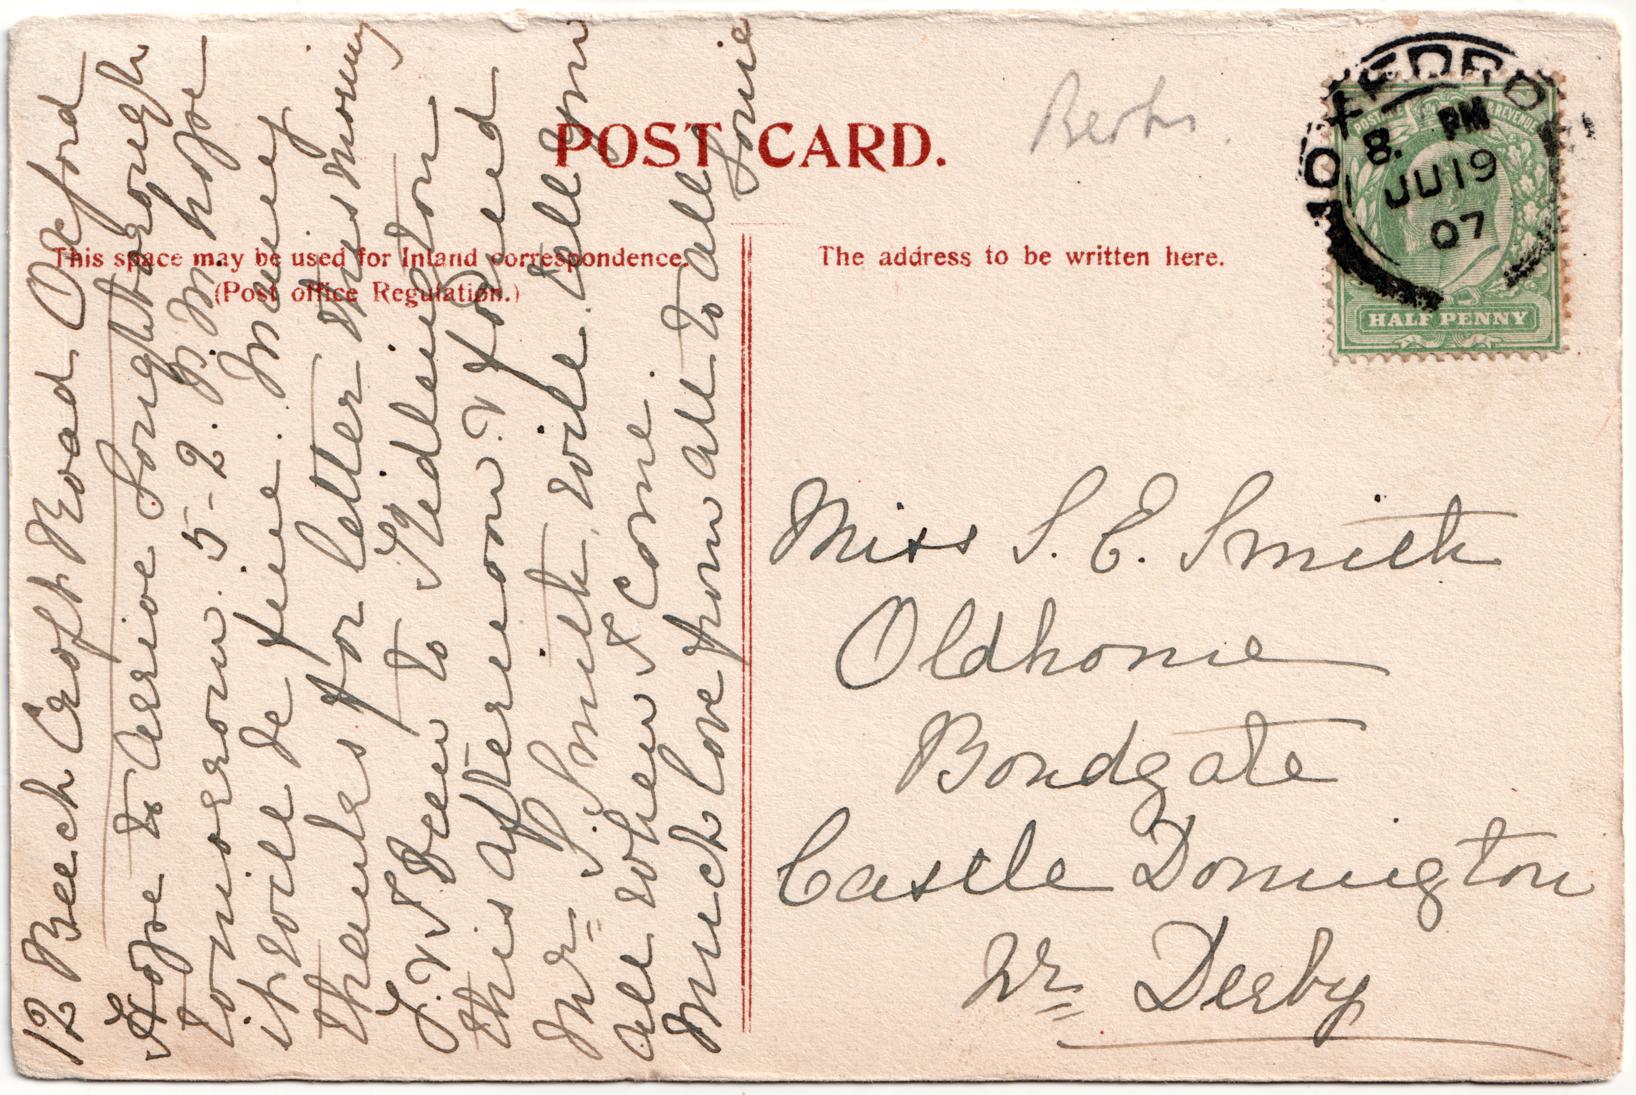 POST CARD.
Berks.
This space may be used for Inland correspondence.
(Post office Regulation.)
The address to be written here.
OXFORD
8. PM
JU 19
07
POSTAGE & REVENUE
HALF PENNY
12 Beech Croft Road Oxford
Hope to arrive Loughborough
tomorrow 5-2. P.M. hope
it will be fine. Meney
thanks for letter this morning
I. & I been to Kidlington
this afternoon. & to
Mr. P. Smith, will tell you
all when I come.
Much love from all to all
Miss S. E. Smith
Oldhome
Bondgate
Castle Donnington
Nr Derby